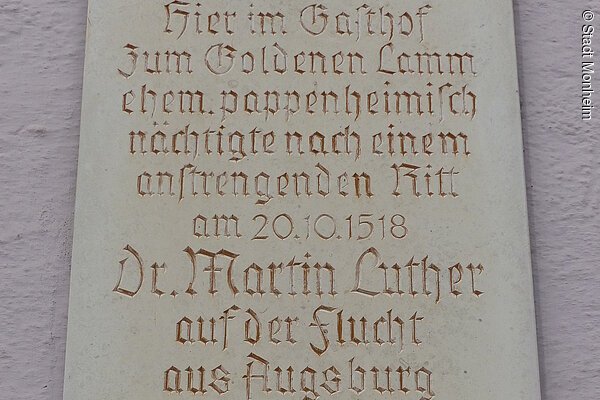 Hier im Gasthof
Zum Goldenen Lamm
ehem. pappenheimisch
nächtigte nach einem
anstrengenden Ritt
am 20.10.1518
Dr. Martin Luther
auf der Flucht
aus Augsburg
© Stadt Monheim